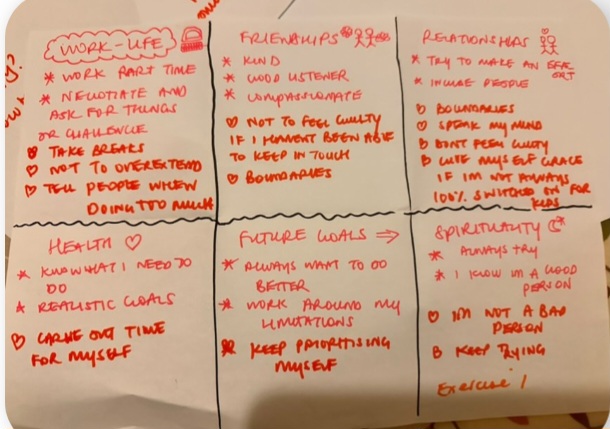 WORK-LIFE
* WORK PART TIME
* NEGOTIATE AND
ASK FOR THINGS
OR CHALLENGE
TAKE BREAKS
NOT TO OVEREXTEND
TELL PEOPLE WHEN
DOING TOO MUCH
FRIENDSHIPS
* KIND
* GOOD LISTENER
* COMPASSIONATE
NOT TO FEEL GUILTY
IF I HAVENT BEEN ABLE
TO KEEP IN TOUCH
BOUNDARIES
RELATIONSHIPS
* TRY TO MAKE AN EFFORT
* INCLUDE PEOPLE
BOUNDARIES
SPEAK MY MIND
DONT FEEL GUILTY
GIVE MYSELF GRACE
IF IM NOT ALWAYS
100% SWITCHED ON FOR
KIDS
HEALTH
* KNOW WHAT I NEED TO
DO
* REALISTIC GOALS
CARVE OUT TIME
FOR MYSELF
FUTURE GOALS →
* ALWAYS WANT TO DO
BETTER
* WORK AROUND MY
LIMITATIONS
KEEP PRIORITISING
MYSELF
SPIRITUALITY
* ALWAYS TRY
* I KNOW IM A GOOD
PERSON
IM NOT A BAD
PERSON
KEEP TRYING
Exercise 1